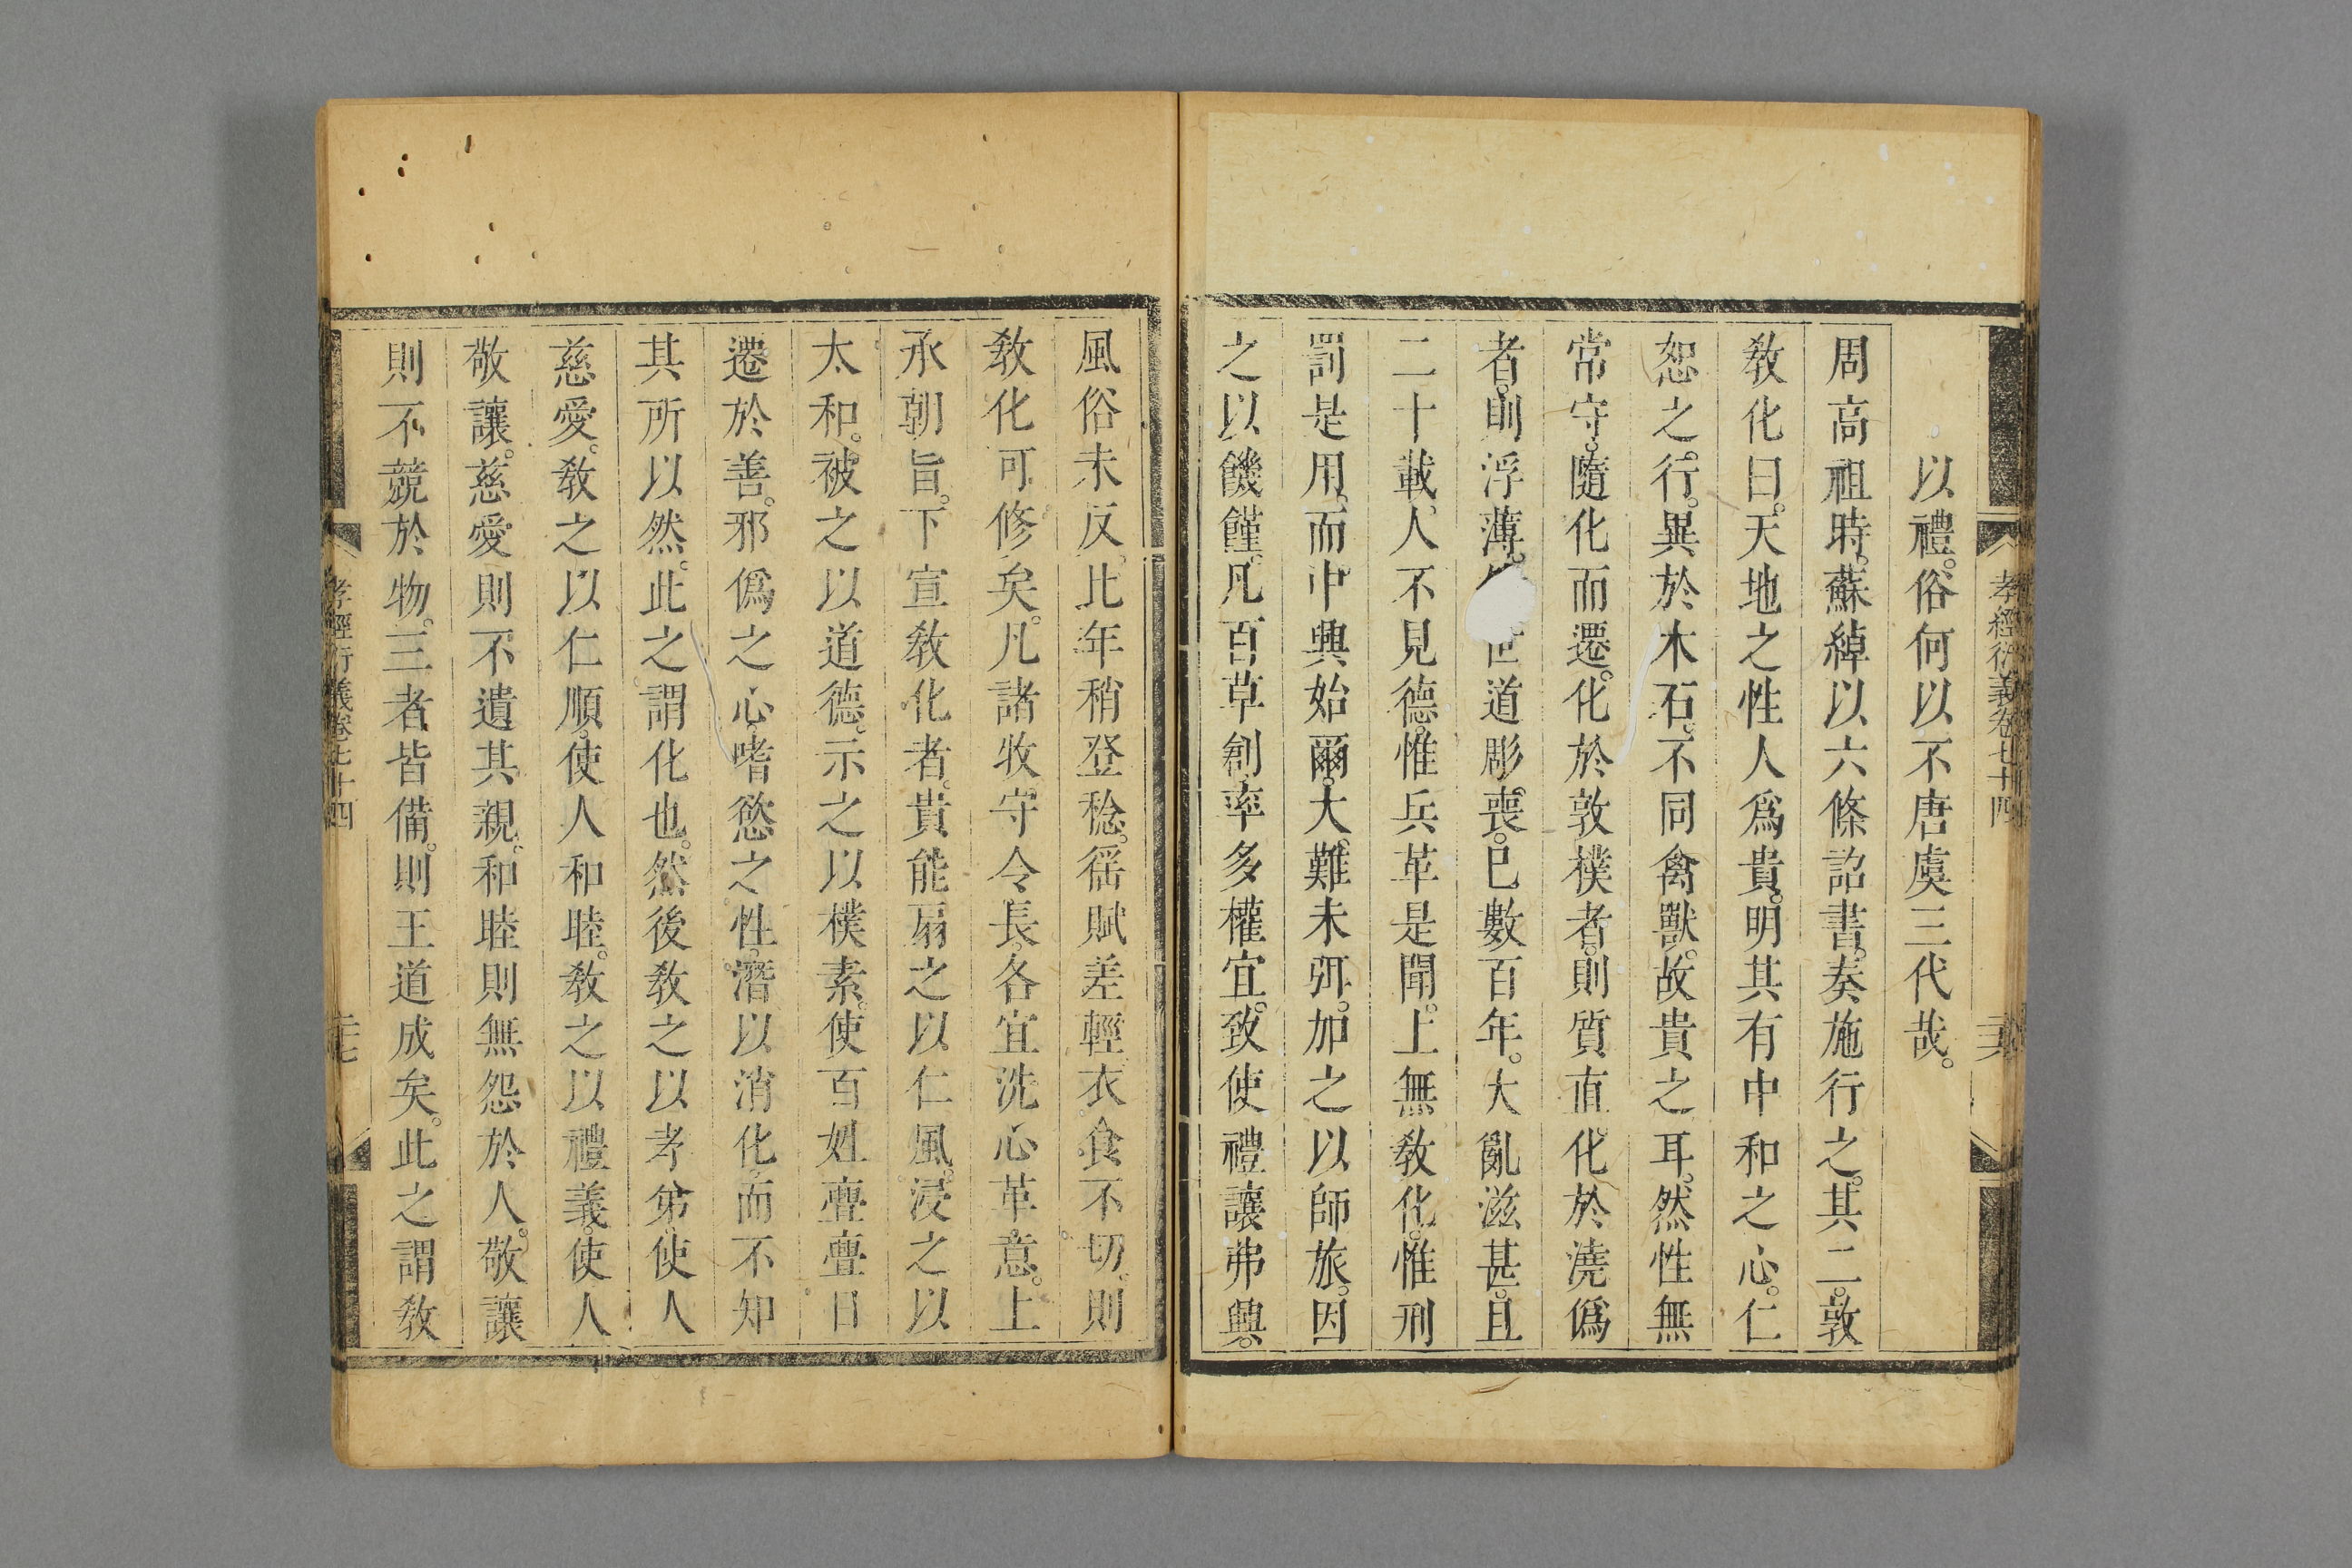 孝經衍義卷七十四
以禮。俗何以不唐虞三代哉。
周高祖時。蘇綽以六條詔書。奏施行之。其二。敦
敎化曰。天地之性人爲貴。明其有中和之心。仁
恕之。行。異於木石。不同禽獸。故貴之耳。然性無
常守。隨化而遷。化於敦樸者。則質直。化於澆僞
者。則浮薄。世道彫喪。已數百年。大亂滋甚。且
二十載。人不見德。惟兵革是聞。上無敎化。惟刑
罰是用。而中興始爾。大。難未弭。加之以師旅。因
之以饑饉。凡百草創。率多權宜。致使禮讓弗興。
風俗未反。比年稍登稔。徭賦差輕。衣。食不切。則
敎化可修矣。凡諸牧。守令長。各宜洗心革。意。上
承朝旨。下宣敎化者。貴能扇之以仁風。浸之以
太和。被之以道德。示之以樸素。使百姓亹亹日
遷於善。邪僞之心。嗜慾之性。潛以消化。而不知
其所以然。此之謂化也。然後敎之以孝弟。使人
慈愛。敎之以仁順。使人和睦。敎之以禮義。使人
敬讓。慈愛則不遺其親。和睦則無怨於人。敬讓
則不競於物。三者皆備。則王道成矣。此之謂敎
孝經衍義卷七十四
二十七